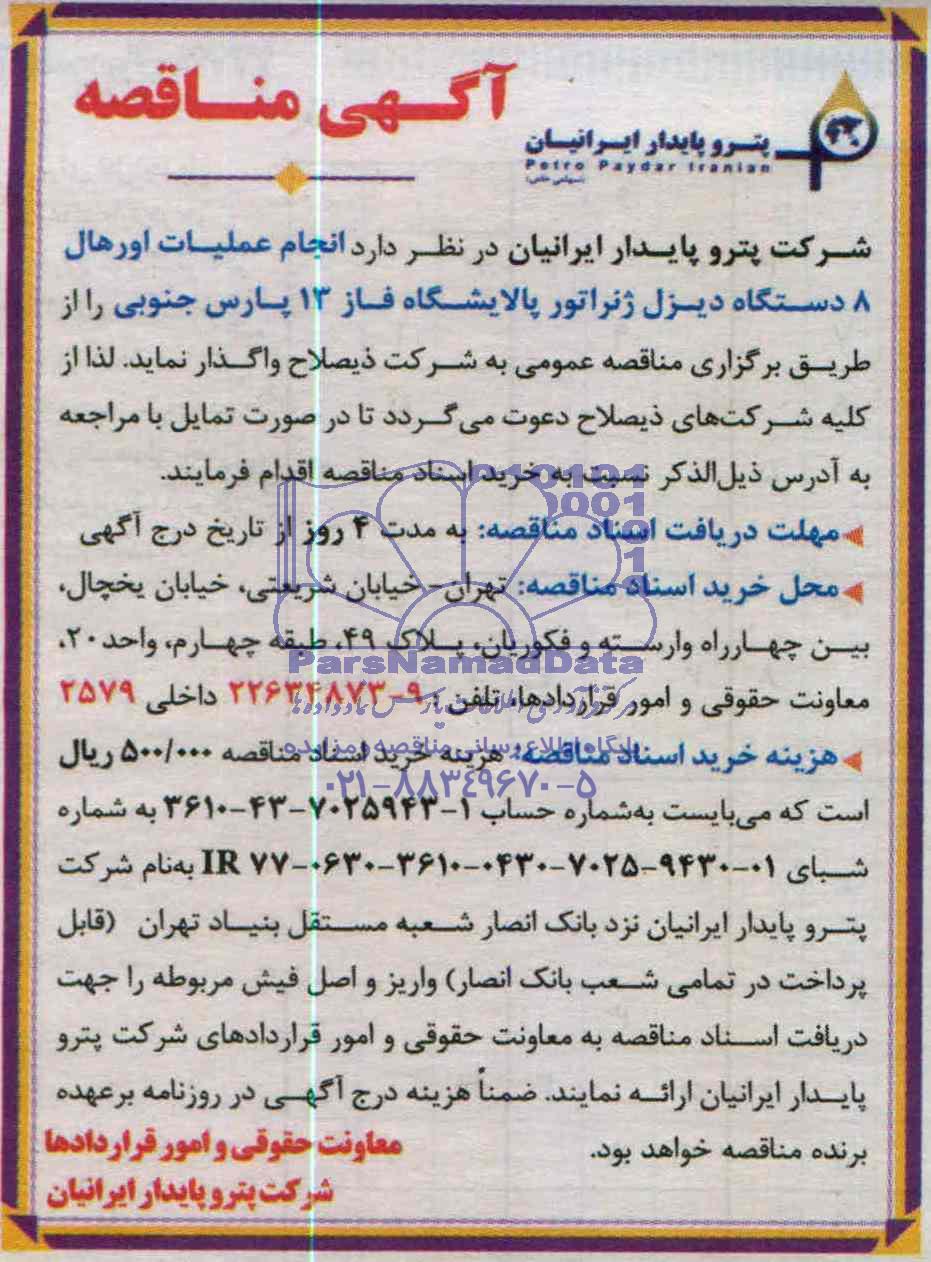 آگهی مناقصه
پترو پایدار ایرانیان
Petro Paydar Iranian
(سهامی خاص)
شرکت پترو پایدار ایرانیان در نظر دارد انجام عملیات اورهال
۸ دستگاه دیزل ژنراتور پالایشگاه فاز ۱۳ پارس جنوبی را از
طریق برگزاری مناقصه عمومی به شرکت ذیصلاح واگذار نماید. لذا از
کلیه شرکت‌های ذیصلاح دعوت می‌گردد تا در صورت تمایل با مراجعه
به آدرس ذیل‌الذکر نسبت به خرید اسناد مناقصه اقدام فرمایند.
مهلت دریافت اسناد مناقصه: به مدت ۴ روز از تاریخ درج آگهی
محل خرید اسناد مناقصه: تهران- خیابان شریعتی، خیابان یخچال،
بین چهارراه وارسته و فکوریان، پلاک ۴۹، طبقه چهارم، واحد ۲۰،
ParsNamadData
معاونت حقوقی و امور قراردادها، تلفن: ۹-۲۲۶۳۴۸۷۳ داخلی ۲۵۷۹
پایگاه اطلاع رسانی مناقصه و مزایده
هزینه خرید اسناد مناقصه: هزینه خرید اسناد مناقصه ۵۰۰/۰۰۰ ریال
۰۲۱-۸۸۳۴۹۶۷۰-۵
است که می‌بایست به‌شماره حساب ۱-۷۰۲۵۹۴۳-۴۳-۳۶۱۰ به شماره
شبای IR ۷۷-۰۶۳۰-۳۶۱۰-۰۴۳۰-۷۰۲۵-۹۴۳۰-۰۱ به‌نام شرکت
پترو پایدار ایرانیان نزد بانک انصار شعبه مستقل بنیاد تهران (قابل
پرداخت در تمامی شعب بانک انصار) واریز و اصل فیش مربوطه را جهت
دریافت اسناد مناقصه به معاونت حقوقی و امور قراردادهای شرکت پترو
پایدار ایرانیان ارائه نمایند. ضمناً هزینه درج آگهی در روزنامه برعهده
برنده مناقصه خواهد بود.
معاونت حقوقی و امور قراردادها
شرکت پترو پایدار ایرانیان